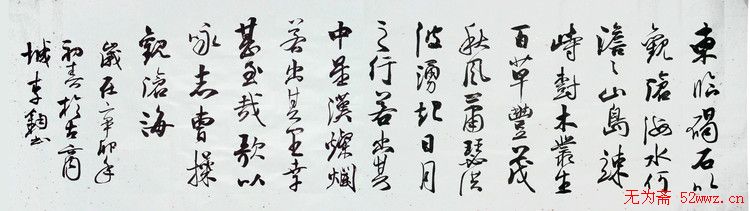 東臨碣石以
觀滄海水何
澹〻山島竦
峙樹木叢生
百草豐茂
秋風蕭瑟洪
波湧起日月
之行若出其
中星漢燦爛
若出其里幸
甚至哉歌以
咏志曹操
觀滄海
歲在辛卯年
初春於古商
城李書
无为斋 52wwz.cn